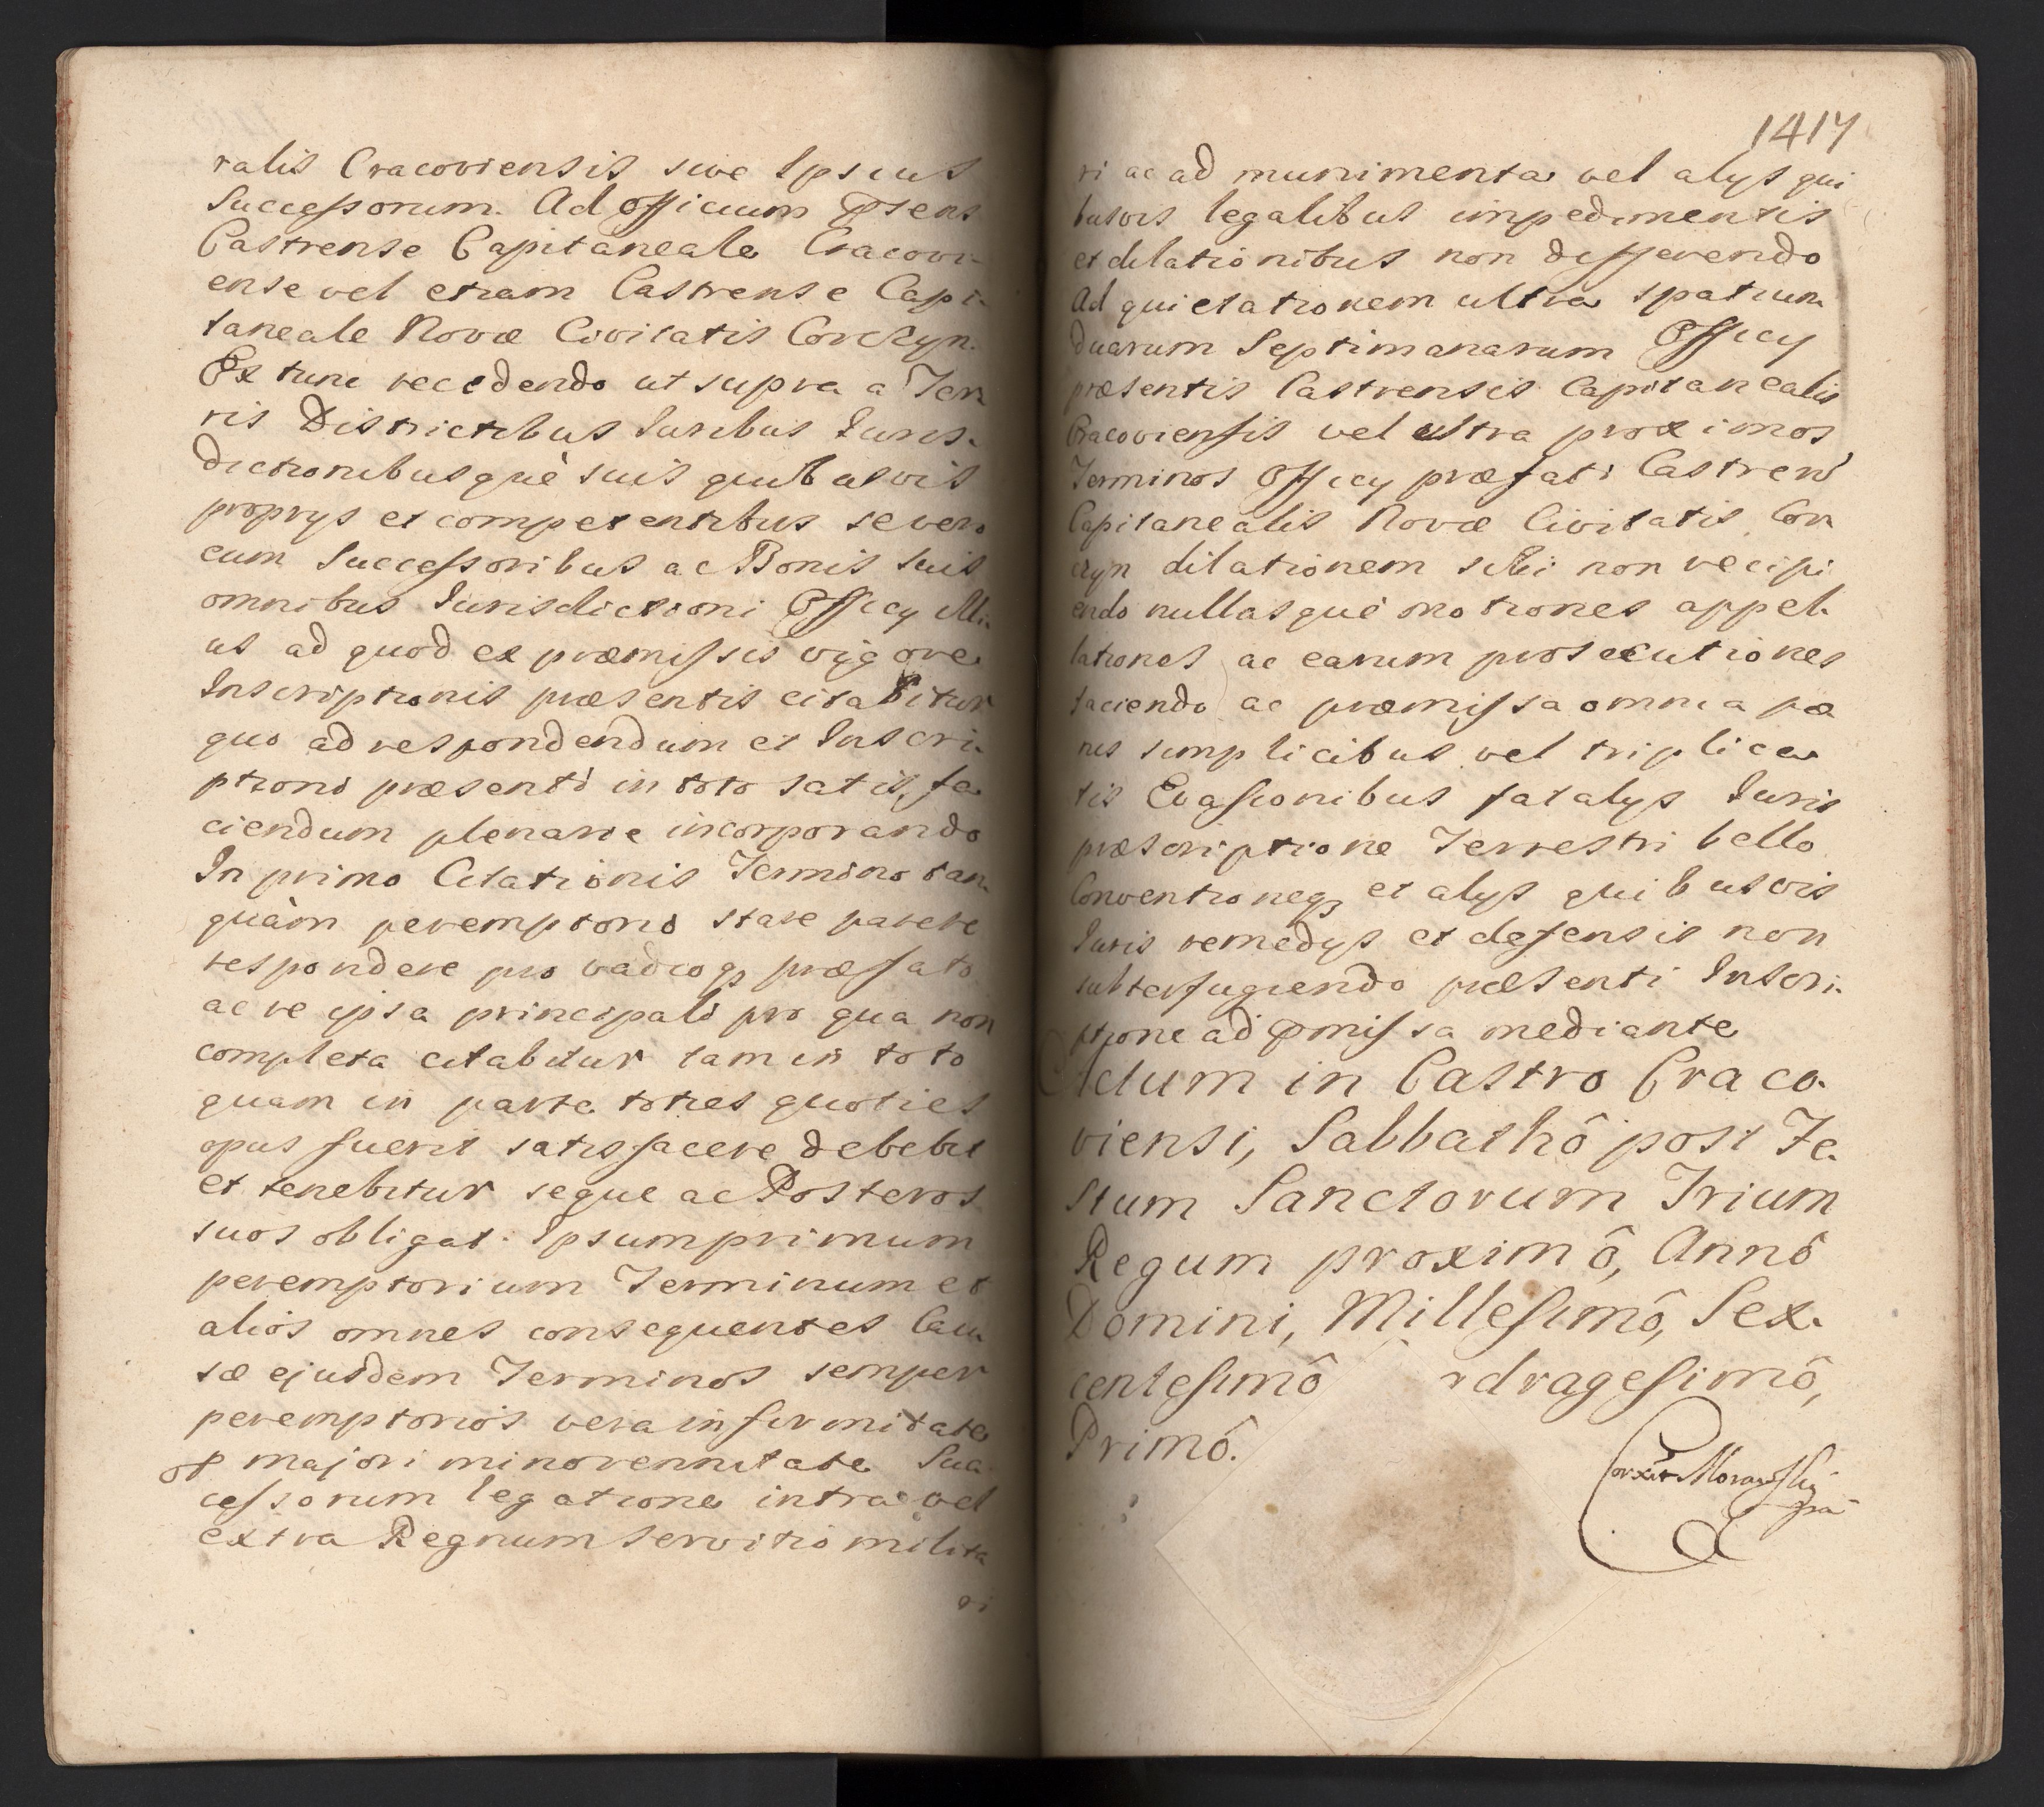 ralis Cracoviensis sive Ipsius
Successorum. Ad Officium Prsens
Castrense Capitaneale Cracovi-
ense vel etiam Castrense Capi-
taneale Novæ Civitatis Corczyn.
Ex tunc recedendo ut supra a Ter
ris Districtibus Iuribus Iuris-
dictionibusquè suis quibusvis
proprys et competentibus se vero
cum Successoribus ac Bonis suis
omnibus Iurisdictioni Officy illi-
us ad quod ex præmissis vigore
Inscriptionis præsentis citabitur
quo ad respondendum et Inscri-
ptioni præsenti in toto satisfa
ciendum plenarie incorporando
In primo Citationis Termino tan
quàm peremptorio stare parere
respondere pro vadioq3 præfato
ac re ipsa principali pro qua non
completa citabitur tam in toto
quam in parte toties quoties
opus fuerit satisfacere debebit
et tenebitur seque ac Posteros
suos obligat. Ipsum primum
peremptorium Terminum et
alios omnes consequentes Cau
sæ ejusdem Terminos semper
peremptorios vera infirmitate
majori minorennitate Suc
cessorum legatione intra vel
extra Regnum servitio milita
ri
1417
ri ac ad munimenta vel alys qui
busvis legalibus impedimentis
et dilationibus non differendo
Ad quietationem ultra spatium
duarum Septimanarum Officy
præsentis Castrensis Capitanealis
Cracoviensis vel ultra proximos
Terminos Officy præfati Castren
Capitanealis Novæ Civitatis Cor
czyn dilationem sibi non recipi
endo nullasquè motiones appel-
lationes ac earum prosecutiones
faciendo ac præmissa omnia pæ
nis simplicibus vel triplica
tis Evasionibus fatalys Iuris
præscriptione Terrestri bello
Conventioneq3 et alys quibusvis
Iuris remedys et defensis non
subterfugiendo præsenti Inscri-
ptione ad pmissa mediante
Actum in Castro Craco-
viensi, Sabbathô post Fe-
stum Sanctorum Trium
Regum proximô, Annô
Domini, Millesimô, Sex-
centesimô dragesimô,
Primô.